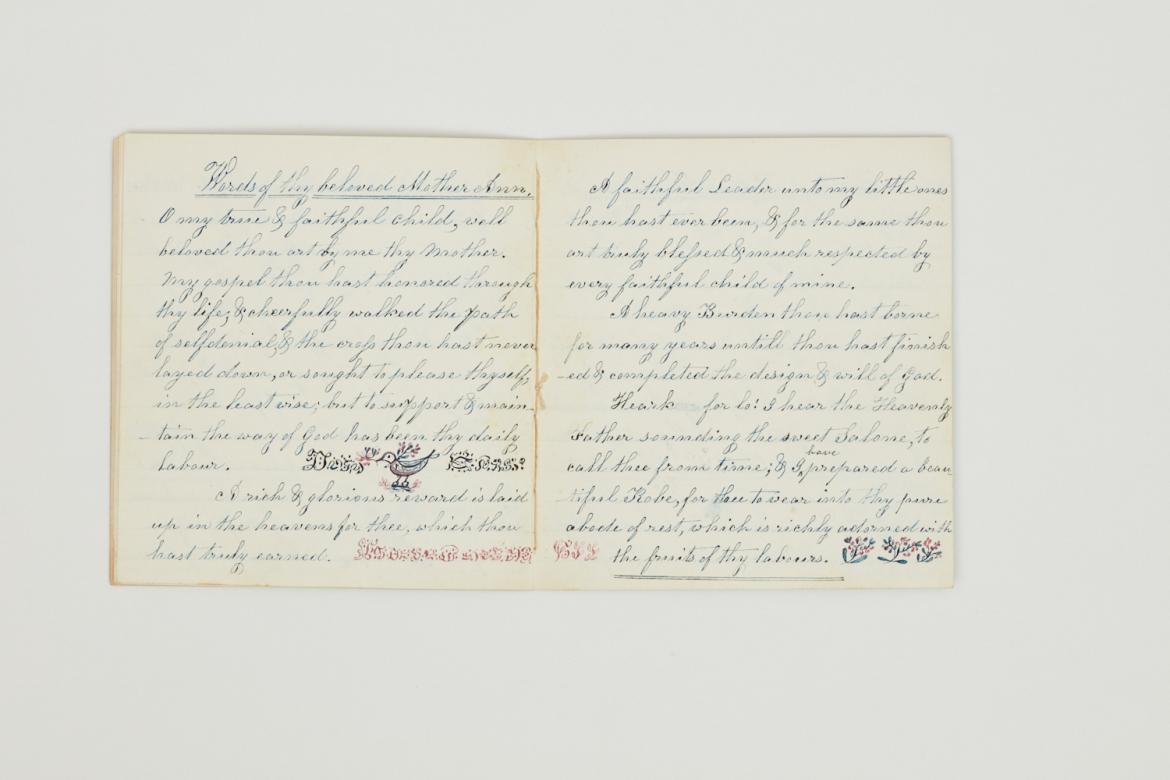 Words of thy beloved Mother Ann.
O my true & faithful child, well
beloved thou art by me thy Mother.
My gospel thou hast honored through
thy life; & cheerfully walked the path
of selfdenial, & the cross thou hast never
layed down, or sought to please thyself,
in the least wise; but to support & main-
-tain the way of God has been thy daily
labour.
A rich & glorious reward is laid
up in the heavens for thee, which thou
hast truly earned.
A faithful Leader unto my little ones
thou hast ever been, & for the same thou
art truly blessed & much respected by
every faithful child of mine.
A heavy Burden thou hast borne
for many years untill thou hast finish
-ed & completed the design & will of God.
Heark for lo! I hear the Heavenly
Father sounding the sweet Salone, to
have
call thee from time; & I prepared a beau
tiful Robe, for thee to wear into thy pure
abode of rest, which is richly adorned with
the fruits of thy labours.